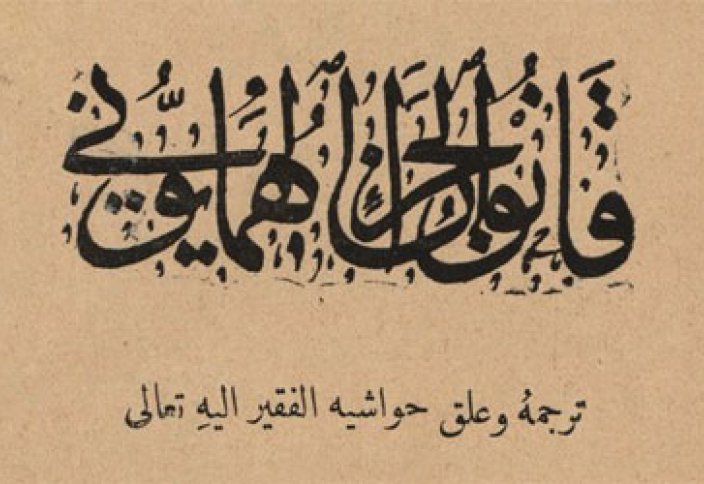 قانون الجزاء الهمايوني
ترجمهُ وعلق حواشيه الفقير اليهِ تعالى